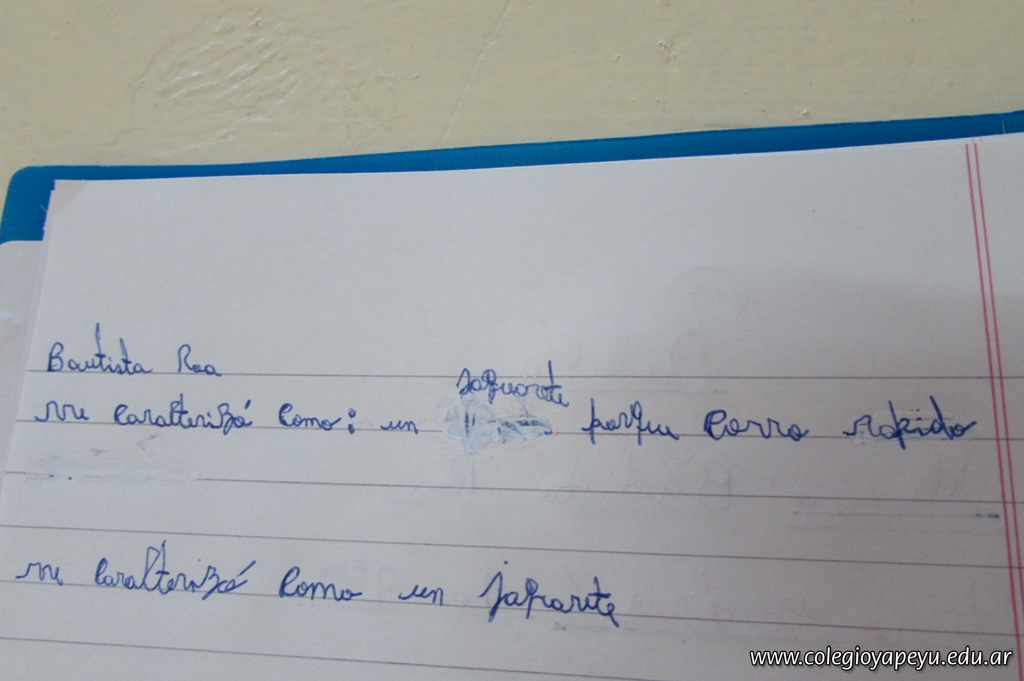 Bautista Roa
me caralterizó como: un jaguarete porque corro rapido
me caralterizó como un jaguarete
www.colegioyapeyu.edu.ar